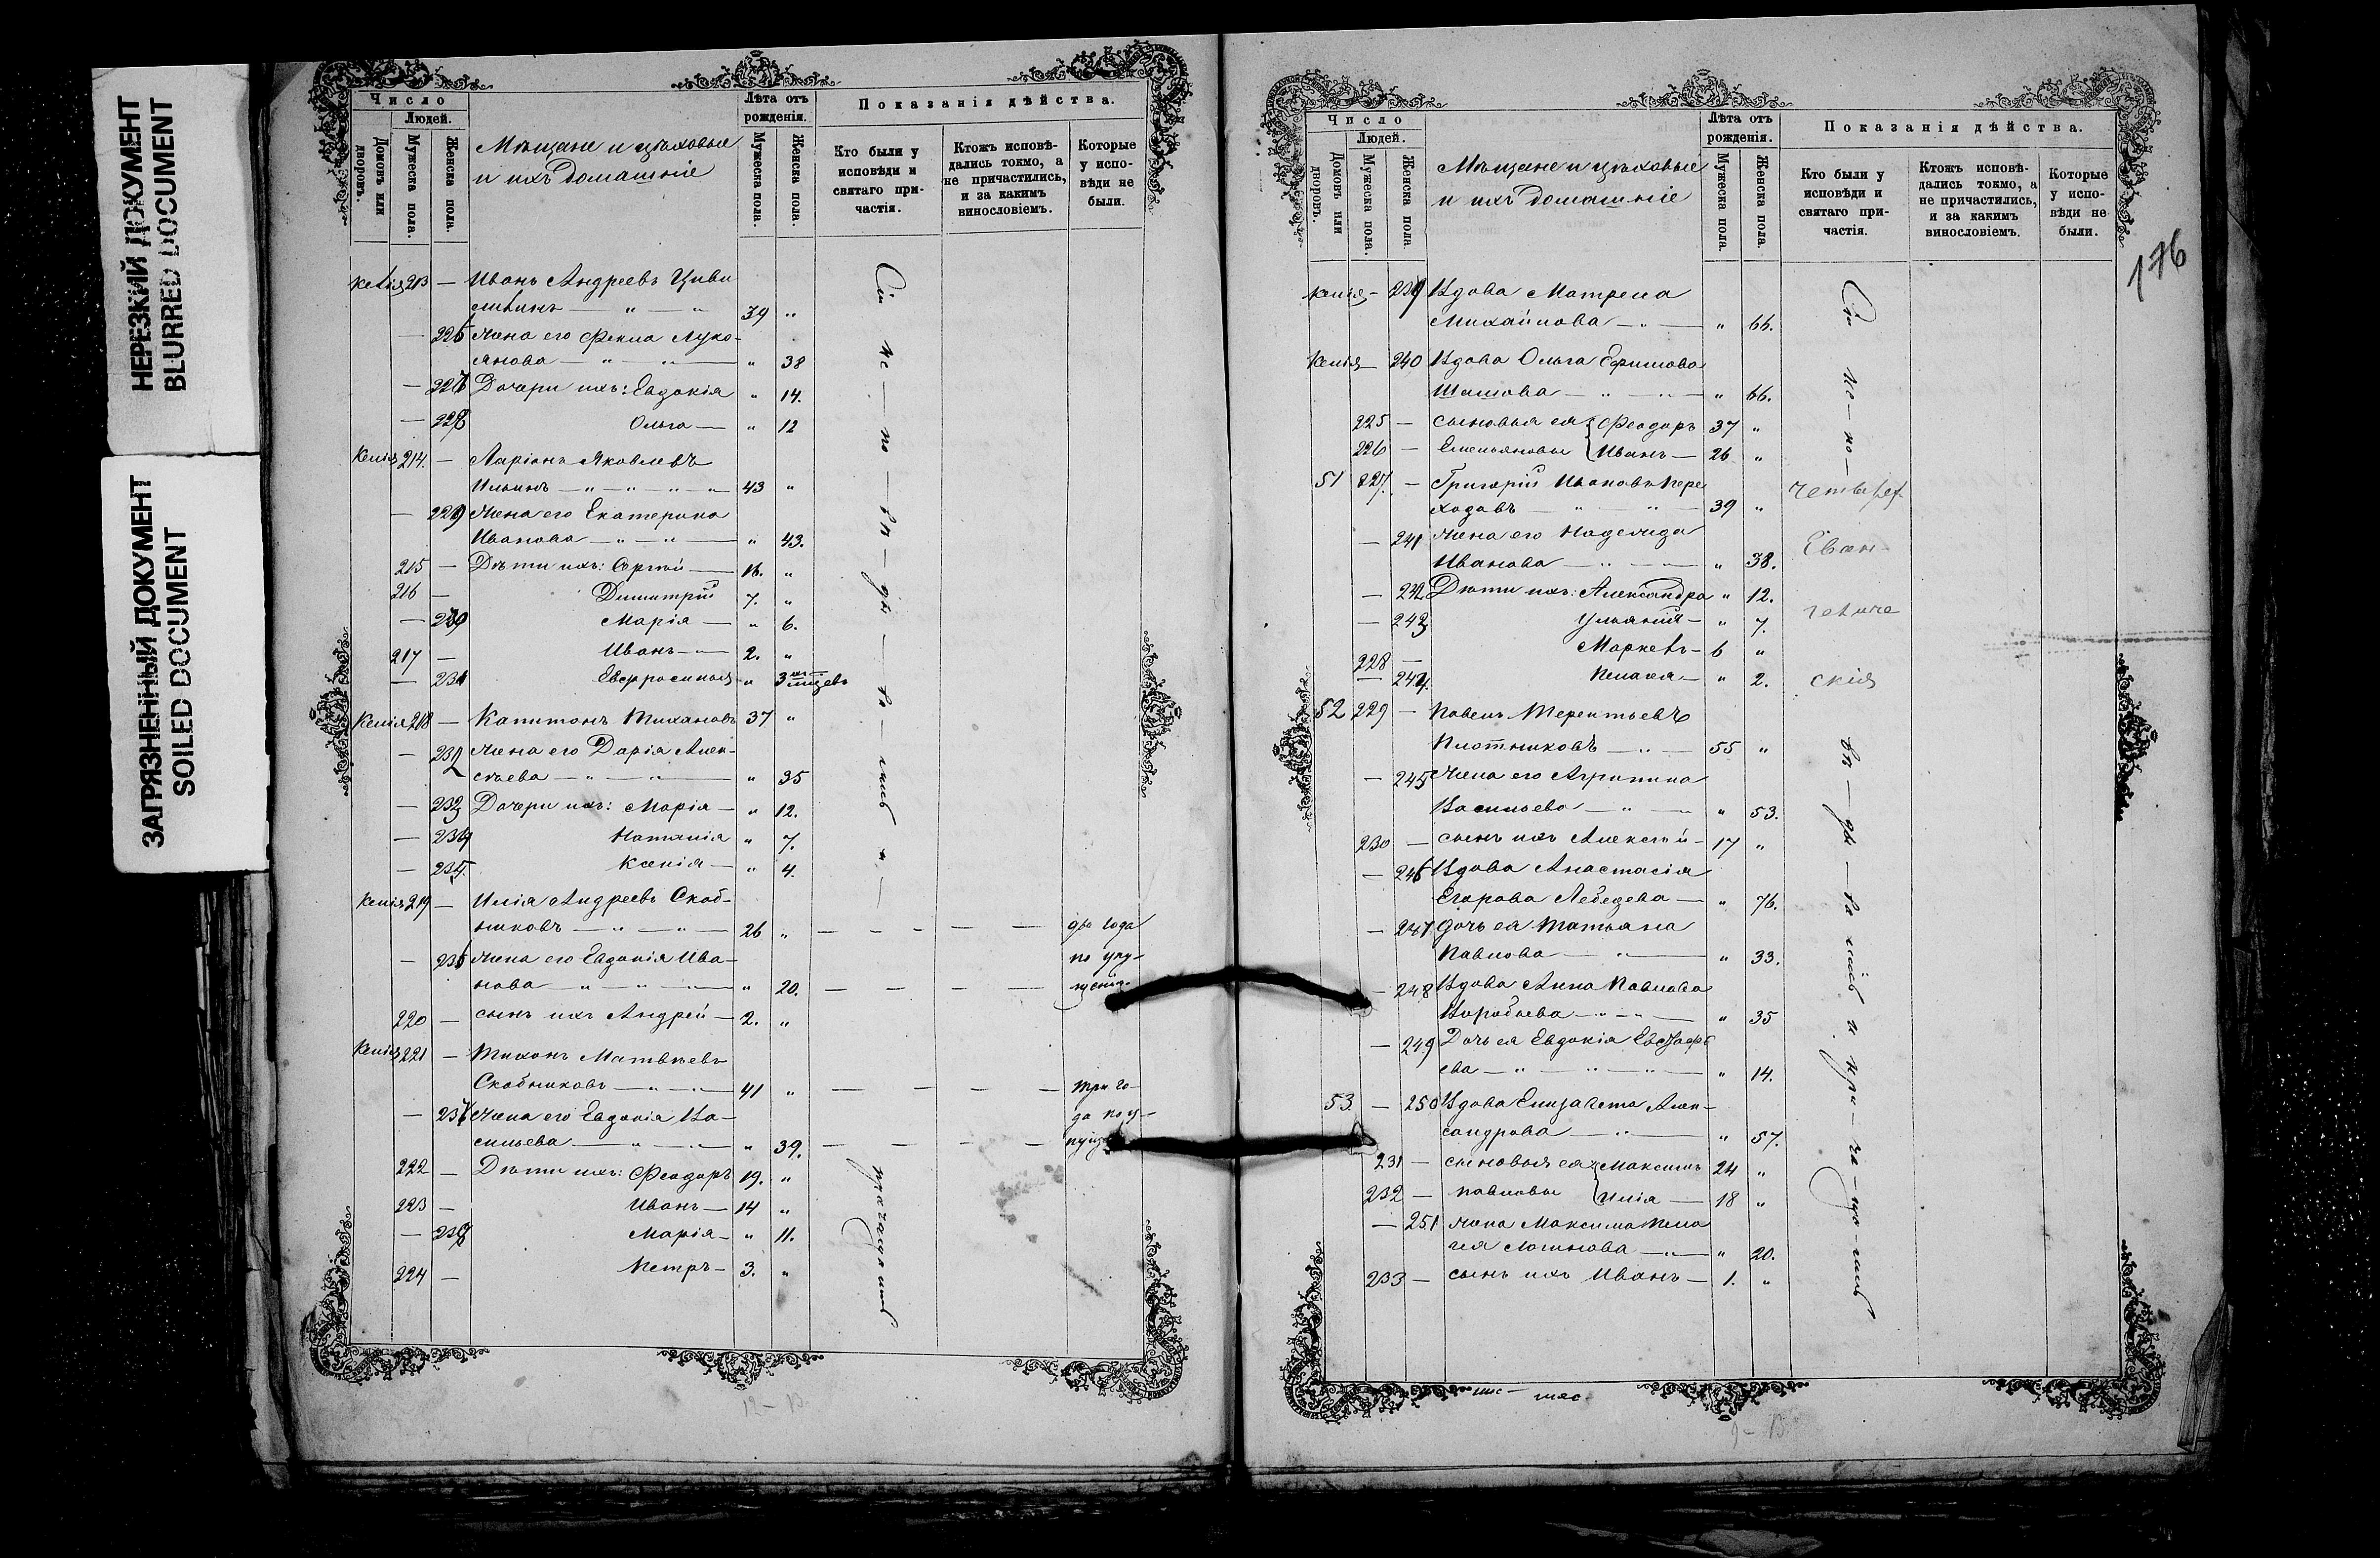 НЕРЕЗКИЙ ДОКУМЕНТ
BLURRED DOCUMENT
ЗАГРЯЗНЕННЫЙ ДОКУМЕНТ
SOILED DOCUMENT
Число
Людей.
Домовъ или дворовъ.
Мужеска пола.
Женска пола.
Мѣщане и цѣховые
и ихъ домашніе
Лѣта отъ рожденія.
Мужеска пола.
Женска пола.
Показанія дѣйства.
Кто были у исповѣди и святаго причастія.
Ктожъ исповѣдались токмо, а не причастились, и за какимъ винословіемъ.
Которые у исповѣди не были.
Келія 213 — Иванъ Андреевъ
39 "
— 225 Жена его Фекла Луко-
янова — " — " 38
— 226 Дочери ихъ: Евдокія " 14.
— 228 Ольга — " 12
Келія 214. — Ларіонъ Яковлевъ
Ильинъ — " — " — 43 "
— 229 Жена его Екатерина
Иванова — " — " 43.
215 — Дѣти ихъ: Сергѣй — 16. "
216 — Димитрій 7. "
Марія — " 6.
217 — Иванъ — 2. "
— 231 Евфросинія " 3 мѣсяцевъ
Келія 218 — Капитонъ Тихановъ 37 "
— 232 Жена его Дарія Алек-
сѣева — " — " 35
— 233 Дочери ихъ: Марія — " 12.
— 234 Наталія " 7.
— 235. Ксенія — " 4.
Келія 219 — Илія Андреевъ Скоб-
никовъ — " — " — 26 " — — — — два года
— 236 Жена его Евдокія Ива- по упу-
нова — " — " — " 20. — — — — щенію
220 — сынъ ихъ Андрей — 2. "
Келія 221 — Тихонъ Матвѣевъ
Скобниковъ — " — 41 " — — — три го-
— 237 Жена его Евдокія Ва- да по у-
сильева — " — " 39. — — — —
222 — Дѣти ихъ: Феодоръ 19. "
223 — Иванъ — 14 "
— 238 Марія — " 11.
224 — Петръ — 3. "
Сіи ис — по — вѣ — да — ва — лись и —
причащались
Число
Людей.
Домовъ или дворовъ.
Мужеска пола.
Женска пола
Мѣщане и цѣховые
и ихъ домашніе
Лѣта отъ рожденія.
Мужеска пола.
Женска пола.
Показанія дѣйства.
Кто были у исповѣди и святаго причастія.
Ктожъ исповѣдались токмо, а не причастились, и за какимъ винословіемъ.
Которые у исповѣди не были.
176
Келія — 239 Вдова Матрена
Михайлова — " — " 66.
Келія — 240 Вдова Ольга Ефимова
— " — " 66.
225 — сыновья ея Феодоръ 37 "
226 — Емельяновы Иванъ — 26 "
51 227. — Григорій Ивановъ Пере
ходовъ — " — " 39 "
— 241 Жена его Надежда
Иванова — " — " 38.
— 242 Дѣти ихъ: Александра " 12.
— 243 — " 7.
228 — 6 "
— 244. Пелагея — " 2.
52 229 — Павелъ Терентьевъ
Плотниковъ — " — 55 "
— 245 Жена его Агрипина
Васильева — " — " 53.
230 — сынъ ихъ Алексѣй — 17 "
— 246 Вдова Анастасія
Егорова Лебедева — " 76.
— 247 дочь ея Татьяна
Павлова — " — " 33.
— 248 Вдова Анна Павлова
Воробьева — " — " 35
— 249 Дочь ея Евдокія
ева — " — " — " 14.
53 — 250 Вдова Елизавета Алек-
сандрова — " — " 57.
231 — сыновья ея Максимъ 24 "
232 — Павловы Илія — 18 "
— 251 Жена Максима Пела
гея Логинова — " — " 20.
233 — сынъ ихъ Иванъ — 1. "
Сіи ис — по — вѣ — да — ва лись и при — ча — ща — лись
Еван-
скія
12 —
9 —